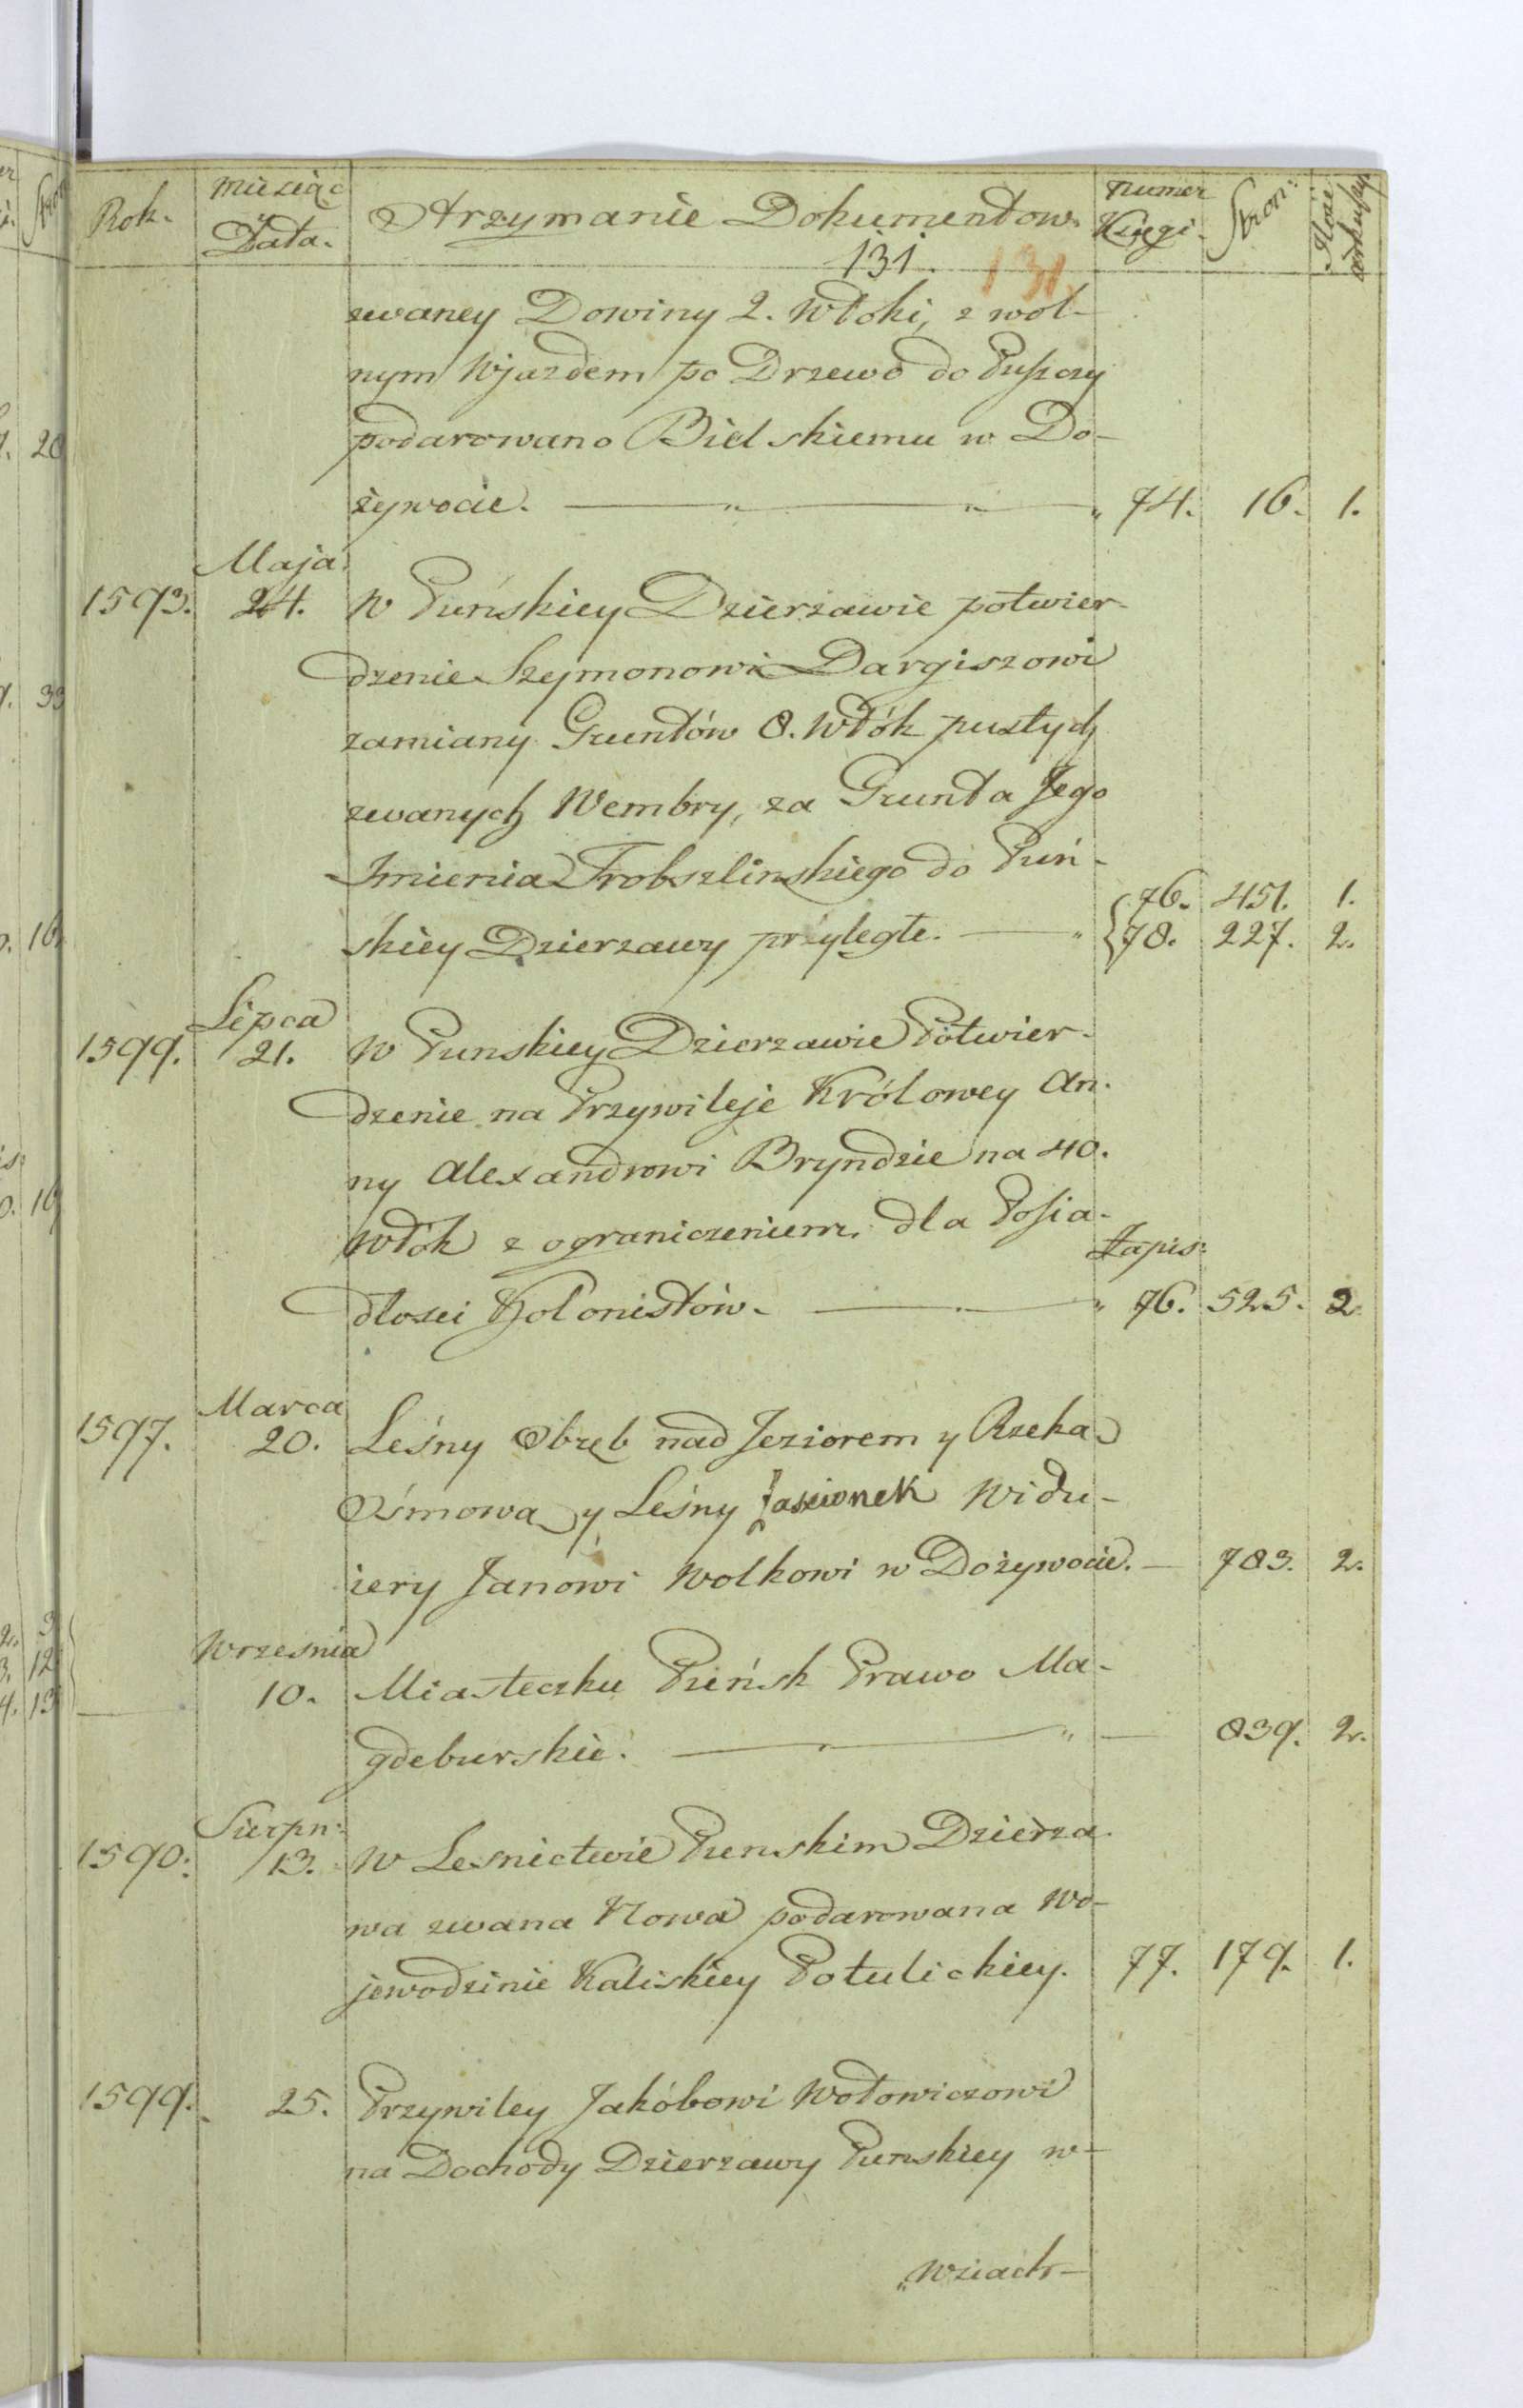 Rok. Miesiąc Data. Otrzymanie Dokumentow. Numer Księgi. Stron: Ilość arkuszy
131. 131.
zwaney Dowiny 2. Włóki, z wol-
nym Wjazdem po Drzewo do Puszczy
podarowano Bielskiemu w Do-
żywocie. 74. 16. 1.
Maja
1593. 24. W Puńskiey Dzierżawie potwier-
dzenie Szymonowi Dargiszowi
zamiany Gruntów 8. Włók pustych
zwanych Wembry, za Grunta Jego
Imienia Trobszlinskiego do Puń-
76. 451. 1.
skiey Dzierzawy przyległe. 78. 227. 2.
Lipca
1599. 21. W Punskiey Dzierzawie Potwier-
dzenie na Przywileje Królowey An-
ny Alexandrowi Bryndzie na 40.
Włók z ograniczeniem dla Posia-
Zapis:
dłosci Kolonistów. 76. 525. 2.
Marca
1597. 20. Leśny Obręb nad Jeziorem y Rzeka
Ośmowa y Leśny Jascionek Widu-
iery Janowi Wolkowi w Dożywocie. 783. 2.
Wrzesnia
10. Miasteczku Puńsk Prawo Ma-
gdeburskie. 839. 2.
Sierpn:
1590. 13. W Lesnictwie Punskim Dzierża-
wa zwana Nowa podarowana Wo-
jewodzinie Kaliskiey Potulickiey. 77. 179. 1.
1599. 25. Przywiley Jakóbowi Wołowiczowi
na Dochody Dzierzawy Punskiey w-
wziach-